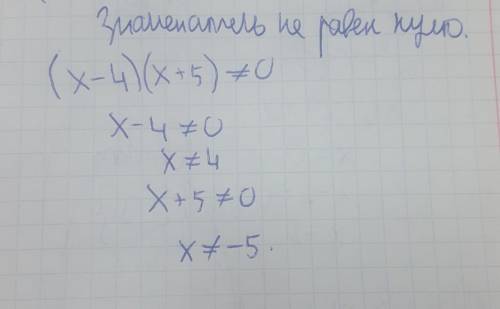 Знаменатель не равен нулю.
(x-4)(x+5)≠0
x-4≠0
x≠4
x+5≠0
x≠-5.